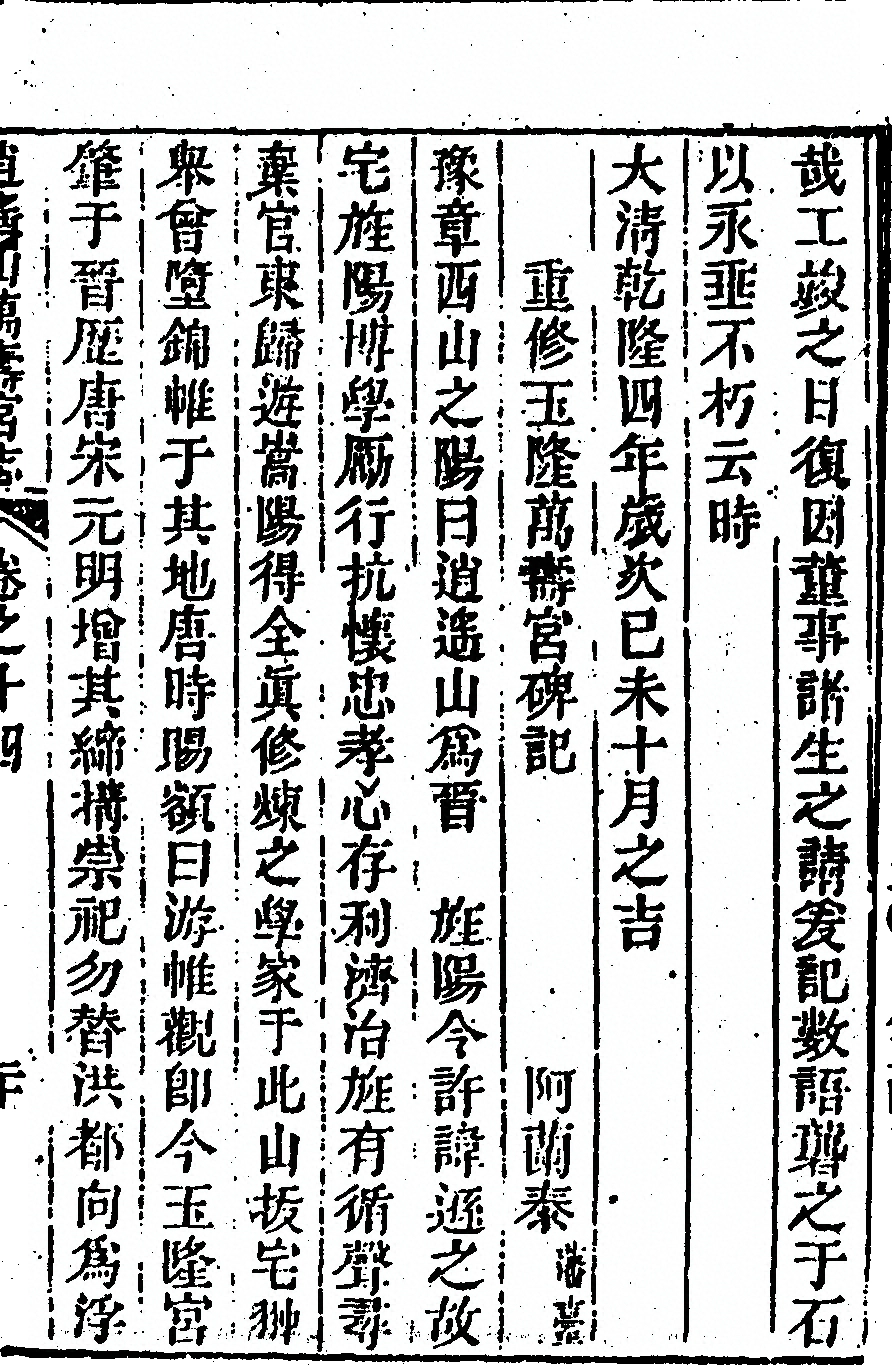 哉工竣之日復因董事諸生之請爰記數語礱之于石
以永垂不朽云時
大淸乾隆四年歲次己未十月之吉
重修玉隆萬壽宮碑記　阿蘭泰 藩臺
豫章西山之陽曰逍遙山爲晉　旌陽令許諱遜之故
宅旌陽博學勵行抗懷忠孝心存利濟治旌有循聲尋
棄官東歸遊嵩陽得全眞修煉之學家于此山拔宅翀
舉曾墮錦帷于其地唐時賜額曰游帷觀卽今玉隆宮
肇于晉歷唐宋元明增其締搆崇祀勿替洪都向爲浮
逍遙山萬壽宮志　卷之十四　二十